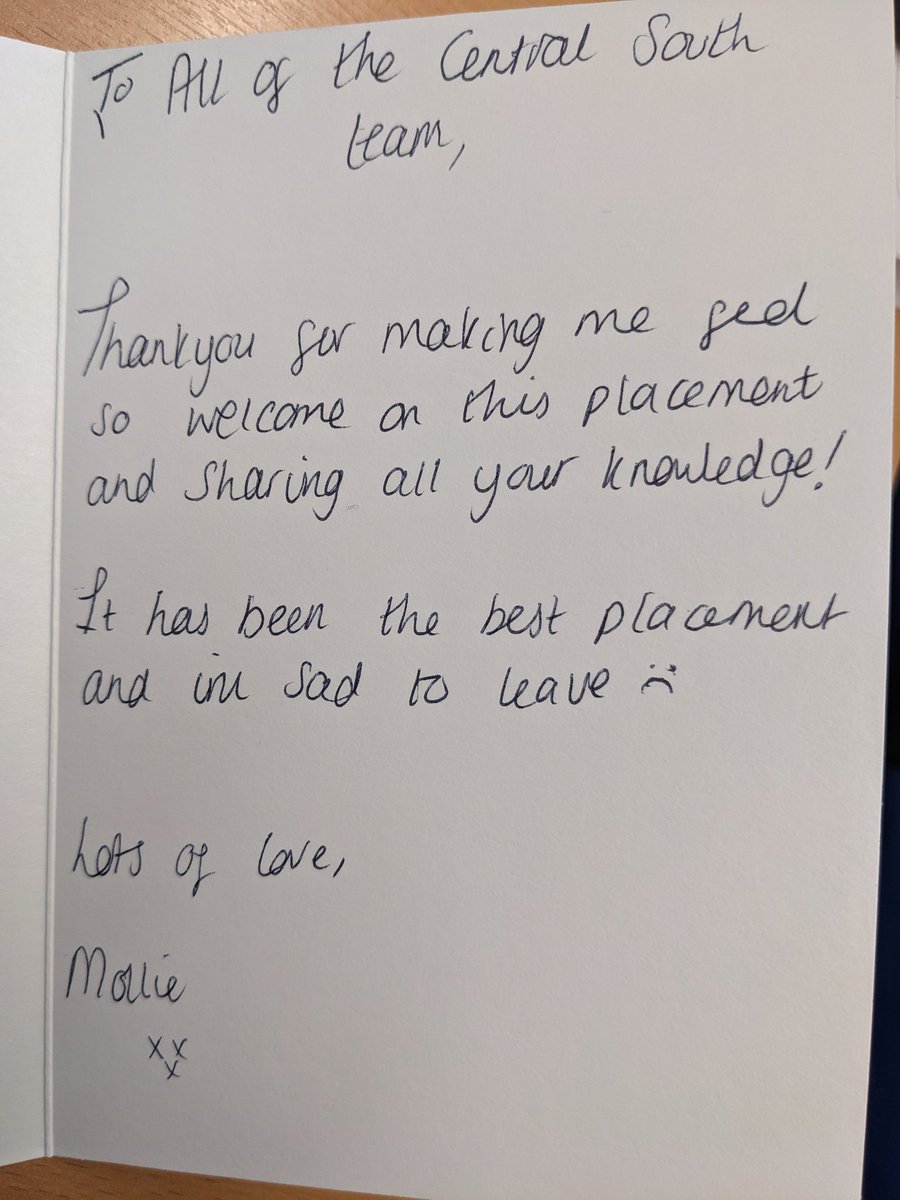 To All of the Central South
team,
Thankyou for making me feel
so welcome on this placement
and sharing all your knowledge!
It has been the best placement
and im sad to leave :(
Lots of love,
Mollie
x x
x